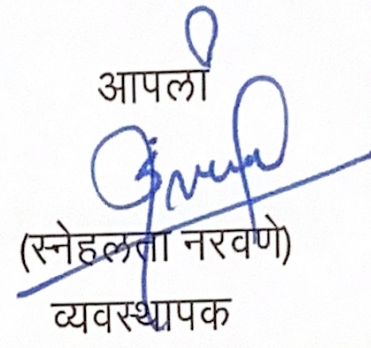 आपला
(स्नेहलता नरवणे)
व्यवस्थापक